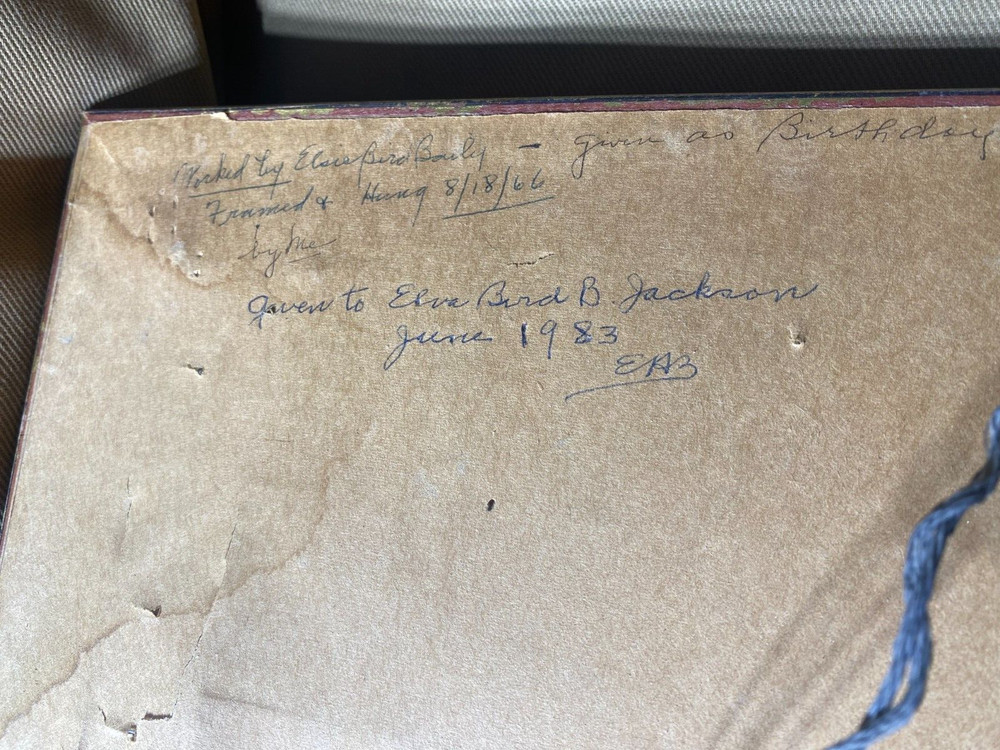 Worked by Elsie Bird Baily - given as Birthday
Framed & Hung 8/18/66
by Me
Given to Elva Bird B. Jackson
June 1983
EAB